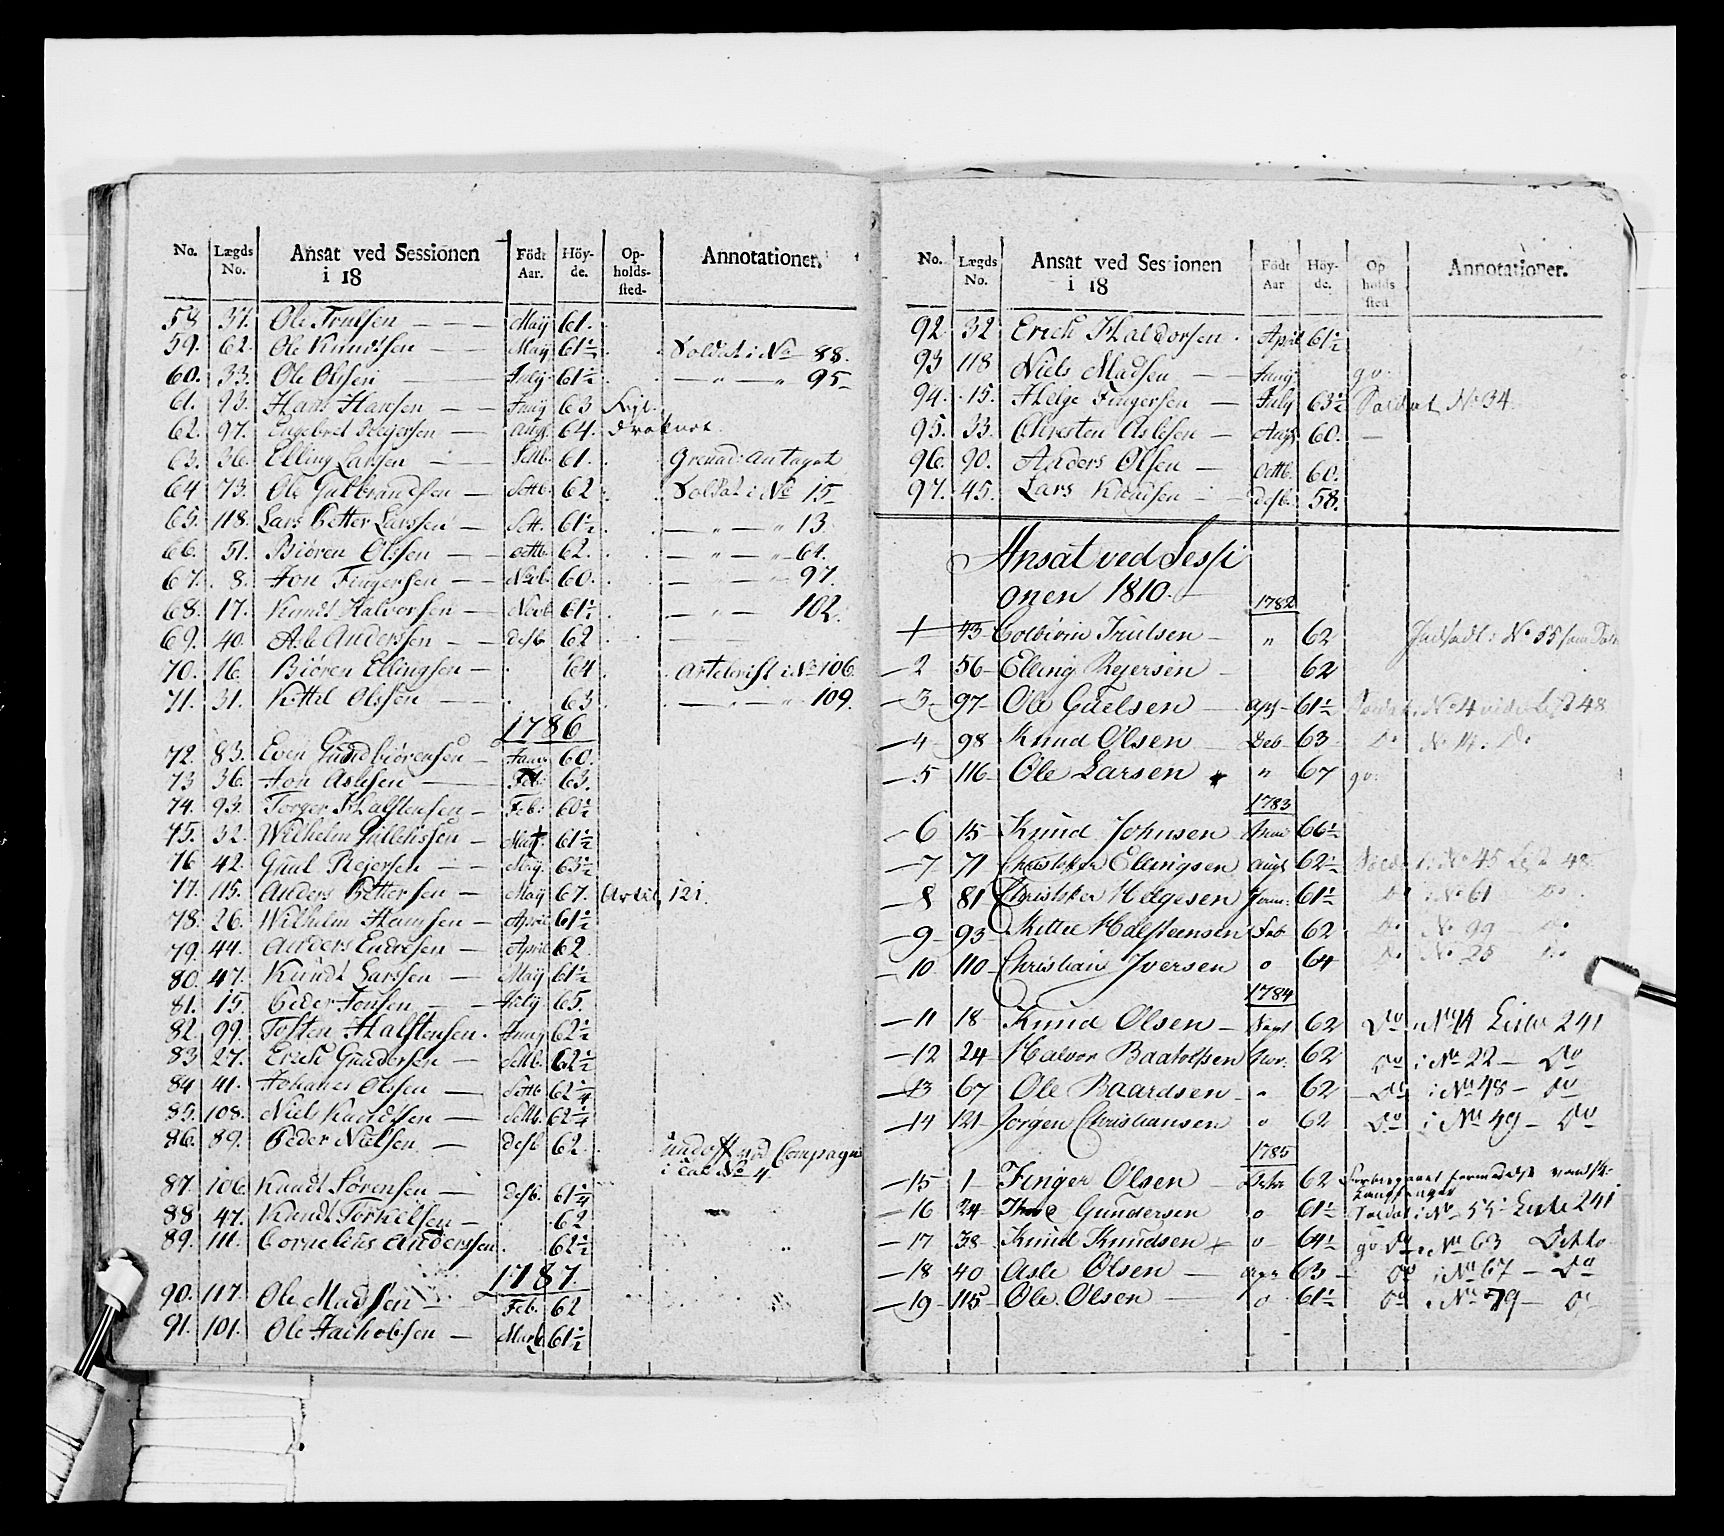 No. Lægds No. Ansat ved Sessionen i 18 Födt Aar. Höy-de. Op-holds-sted- Annotationer.
58 37. Ole Trulsen — Maÿ 61.
59. 62. Ole Knudsen — Maÿ 61½ Soldat i No 88.
60. 33. Ole Olssen — July 61½ — „ — „ 95
61. 93. Hans Hansen — 63
62. 97. Engebret Rejersen — Augs 64.
63. 36. Elling Larsen — Settb. 61. Grenad: antaget
64 73. Ole Gulbrandsen — Settb. 62 Soldat i No 15
65. 118. Lars Petter Larssen — Sett. 61½ — „ — „ 13.
66. 51. Biören Olssen — octtb. 62. — „ — „ 64.
67. 8. Jon Fingersen — Novb. 60. — „ 97.
68. 17. Knudt Halvorsen — Novb 61½ — „ — 102.
69. 40. Asle Anderssen — desb 62
70. 16. Biören Ellingsen — 64 i No 106.
71. 31. Kittil Olssen — 63 — „ — „ 109.
1786
72. 83. Even Gundbiörensen — Janu 60.
73 36. Jon Aslesen — Feb: 63.
74. 93. Torger Halstensen — Feb: 60½
75. 32. Wilhelm Gullichssen — Maÿ. 61½
76 42. Gual Rejersen — Maÿ. 63½
77. 115. Anders Pettersen — Maÿ 67. Artil. 121.
78. 26. Wilhelm Hansen — April 61½
79. 44. Anders Endresen — April 62.
80. 47. Knudt Larssen — Maÿ 61½
81. 15. Peder Jonsen — July 65.
82. 99. Tosten Halstensen. 62½
83 27. Erich Gundersen — Settb. 62½
84 41. Johanes Olssen — Settb 62¼
85. 108. Niels Knudtsen — Settb. 62¼
86. 89. Peder Nielsen — desb 62. ved Compagn
i No 4
87. 106. Knudt Sörensen — desb. 61¼
88 47. Knudt Torkelsen — 62
89. 111. Cornelius Anderssen 62½
1787.
90. 117. Ole Madssen — Feb. 62
91. 101. Ole Jachobsen — Marti 61½
No. Lægds No. Ansat ved Sessionen i 18 Födt Aar Höy-de. Op holds sted Annotationer.
92. 32 Erich Haldorsen. April 61½
93 118 Niels Madsen — go.
94. 15. Helge Fingersen — July 63½ Soldat No 34
95. 33. Christen Aslesen — Augs 60. —
96. 90. Anders Olsen — Octtb. 60.
97. 45. Lars Knudsen — desb. 58.
Ansat ved Sessi
onen 1810.
1782
1 43 Colbiörn Trulsen — „ 62 i No 55 som
2 56 Elling Rejersen — 62
3 97 Ole Guelsen — 61½ Soldat i No 4 48
4 98 Knud Olsen — Deb 63 Do No 14. Do
5 116 Ole Larsen „ 67 go.
1783
6 15 Knud Johnsen 66½
7 71 Christopher Ellingsen Augt 62½ No 45 48
8 81 Christopher Helgesen 61½ Do i No 61 Do
9 93 Kittel Halsteensen Feb 62 Do No 99 Do
10 110 Christian Iversen o 64 Do No 25 Do
1784
11 18 Knud Olsen — 62 Do i No 14 Liste 241
12 24 Halvor Baatolfsen 62 Do i No 22 — Do
13 67 Ole Baardsen — „ 62 Do i No 48 — Do
14 121 Jörgen Christiansen o 62 Do i No 49 — Do
1785
15 1 Finger Olsen — 62
16 24 Gundersen o 61½ Soldat i No 55 Liste 241
17 38 Knud Knudsen o 64½ go Do i No 63 Ditto
18 40 Asle Olsen — Apr 63 Do i No 67 — Do
19 115 Ole Olsen — o 61½ Do i No 79 — Do